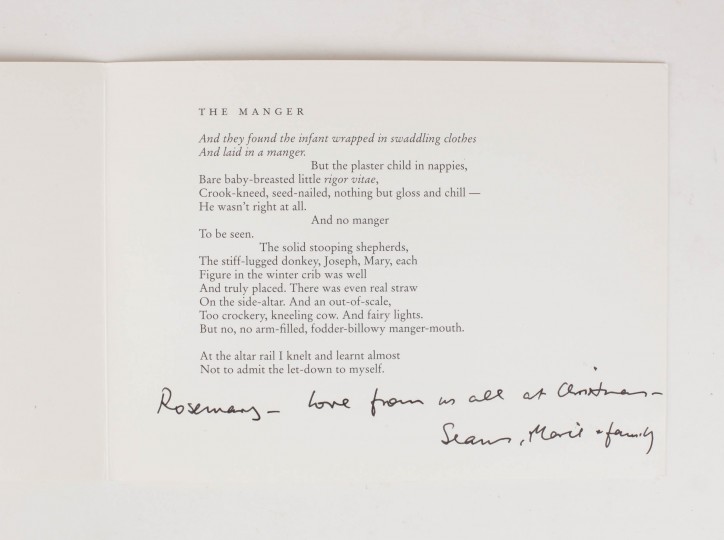 THE MANGER
And they found the infant wrapped in swaddling clothes
And laid in a manger.
But the plaster child in nappies,
Bare baby-breasted little rigor vitae,
Crook-kneed, seed-nailed, nothing but gloss and chill —
He wasn't right at all.
And no manger
To be seen.
The solid stooping shepherds,
The stiff-lugged donkey, Joseph, Mary, each
Figure in the winter crib was well
And truly placed. There was even real straw
On the side-altar. And an out-of-scale,
Too crockery, kneeling cow. And fairy lights.
But no, no arm-filled, fodder-billowy manger-mouth.
At the altar rail I knelt and learnt almost
Not to admit the let-down to myself.
Rosemary — love from us all at Christmas —
Seamus, Marie + family